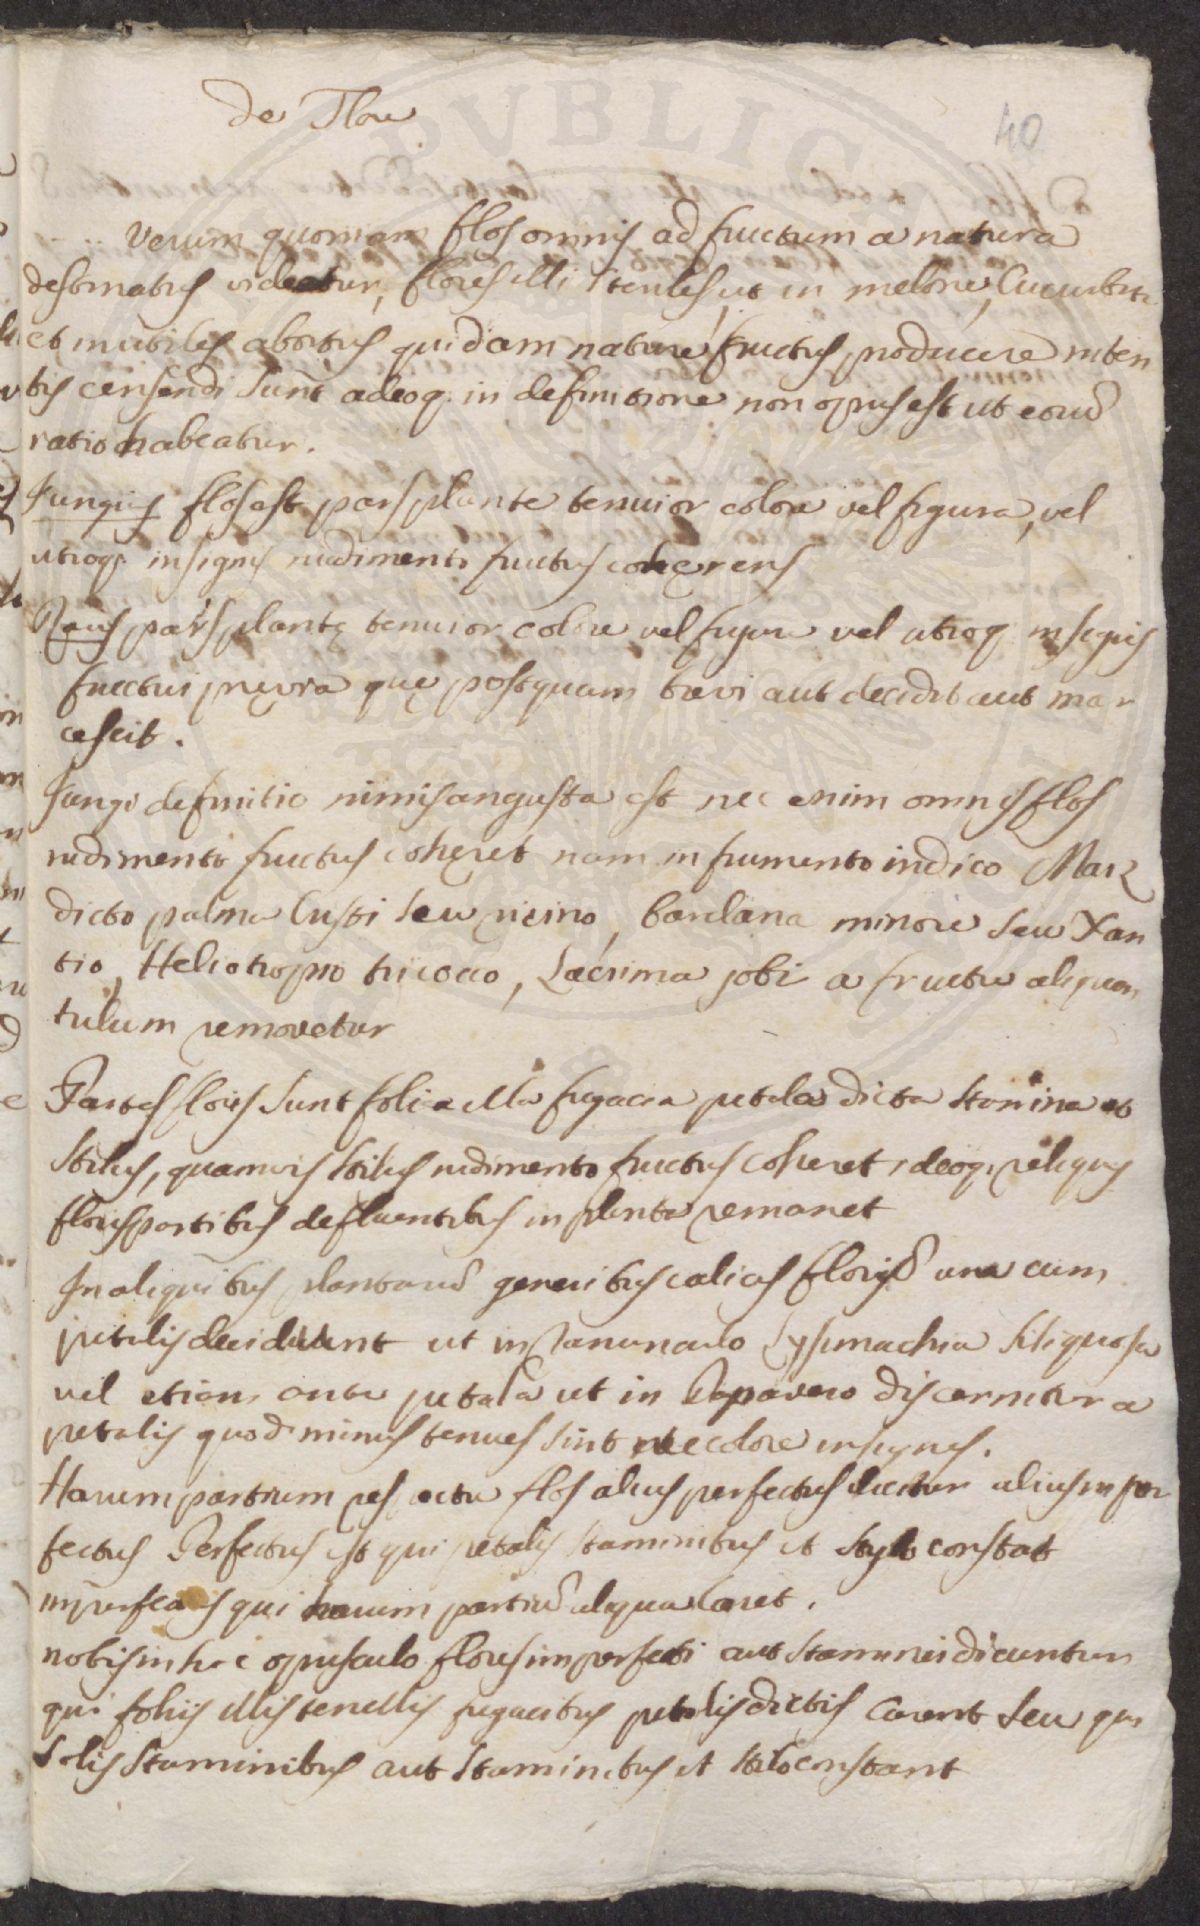 de Flore
40
Verum quoniam flos omnis ad fructum a natura
destinatus videatur, flores illi steriles ut in melone, Cucurbita
et inutiles abortus quidam nature fructus producere inten
tis censendi sunt adeoq. in definitione non opus est ut eorū
ratio habeatur.
Jungius flos est pars plante tenuior colore vel figura, vel
utroq. insignis rudimento fructus cohęrens
Raius pars plantę tenuior colore vel figura vel utroq. insignis
fructui prævia quę postquam brevi aut decidit aut mar
cescit.
Jungi definitio nimis angusta est nec enim omnis flos
rudimento fructus cohęret nam in frumento indico Maiz
dicto palma Cristi seu ricino, bardana minore seu Xan
tio, Heliotropio tricoco, Lacrima jobi a fructu aliquan
tulum removetur
Partes floris sunt folia illa fugacia petala dicta stamina et
stilus, quamvis stilus rudimento fructus coheret ideoq. reliquis
floris partibus defluentibus in planta remanet
In aliquibus plantarū generibus calices florū una cum
petalis decidunt ut in Ranunculo Lysimachia siliquosa
vel etiam ante petala ut in Papavero discernitur a
petalis quod minus tenues sint nec colore insignes.
Harum partium respectu flos alius perfectus dicitur alius imper
fectus Perfectus est qui petalis staminibus et stylo constat
imperfectus qui harum partiū aliqua caret.
nobis in hoc opusculo flores imperfecti aut staminei dicuntur
qui foliis illis tenellis fugacibus petalis dictis carent seu qui
solis staminibus aut staminibus et stilo constant